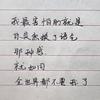 我最害怕的就是
你突然换了语气
那种感
就如同
全世界都不要我了